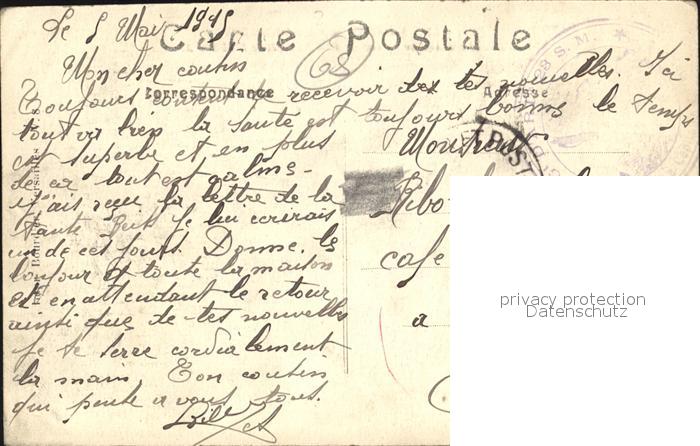 Le 5 Mai 1915
Carte Postale
Mon cher cousin
Correspondance
Adresse
Toujours content de recevoir de tes nouvelles. Ici
tout va bien la santé est toujours bonne le temps
est superbe et en plus
de ça tout est calme -
j'ais reçu la lettre de la
tante je lui ecrirais
un de ces jours. Donne le
bonjour à toute la maison
et en attendant le retour
ainsi que de tes nouvelles
Je te serre cordialement
la main Ton cousin
qui pense a vous tous.
Monsieur
Ribo
cafe
a
privacy protection
Datenschutz